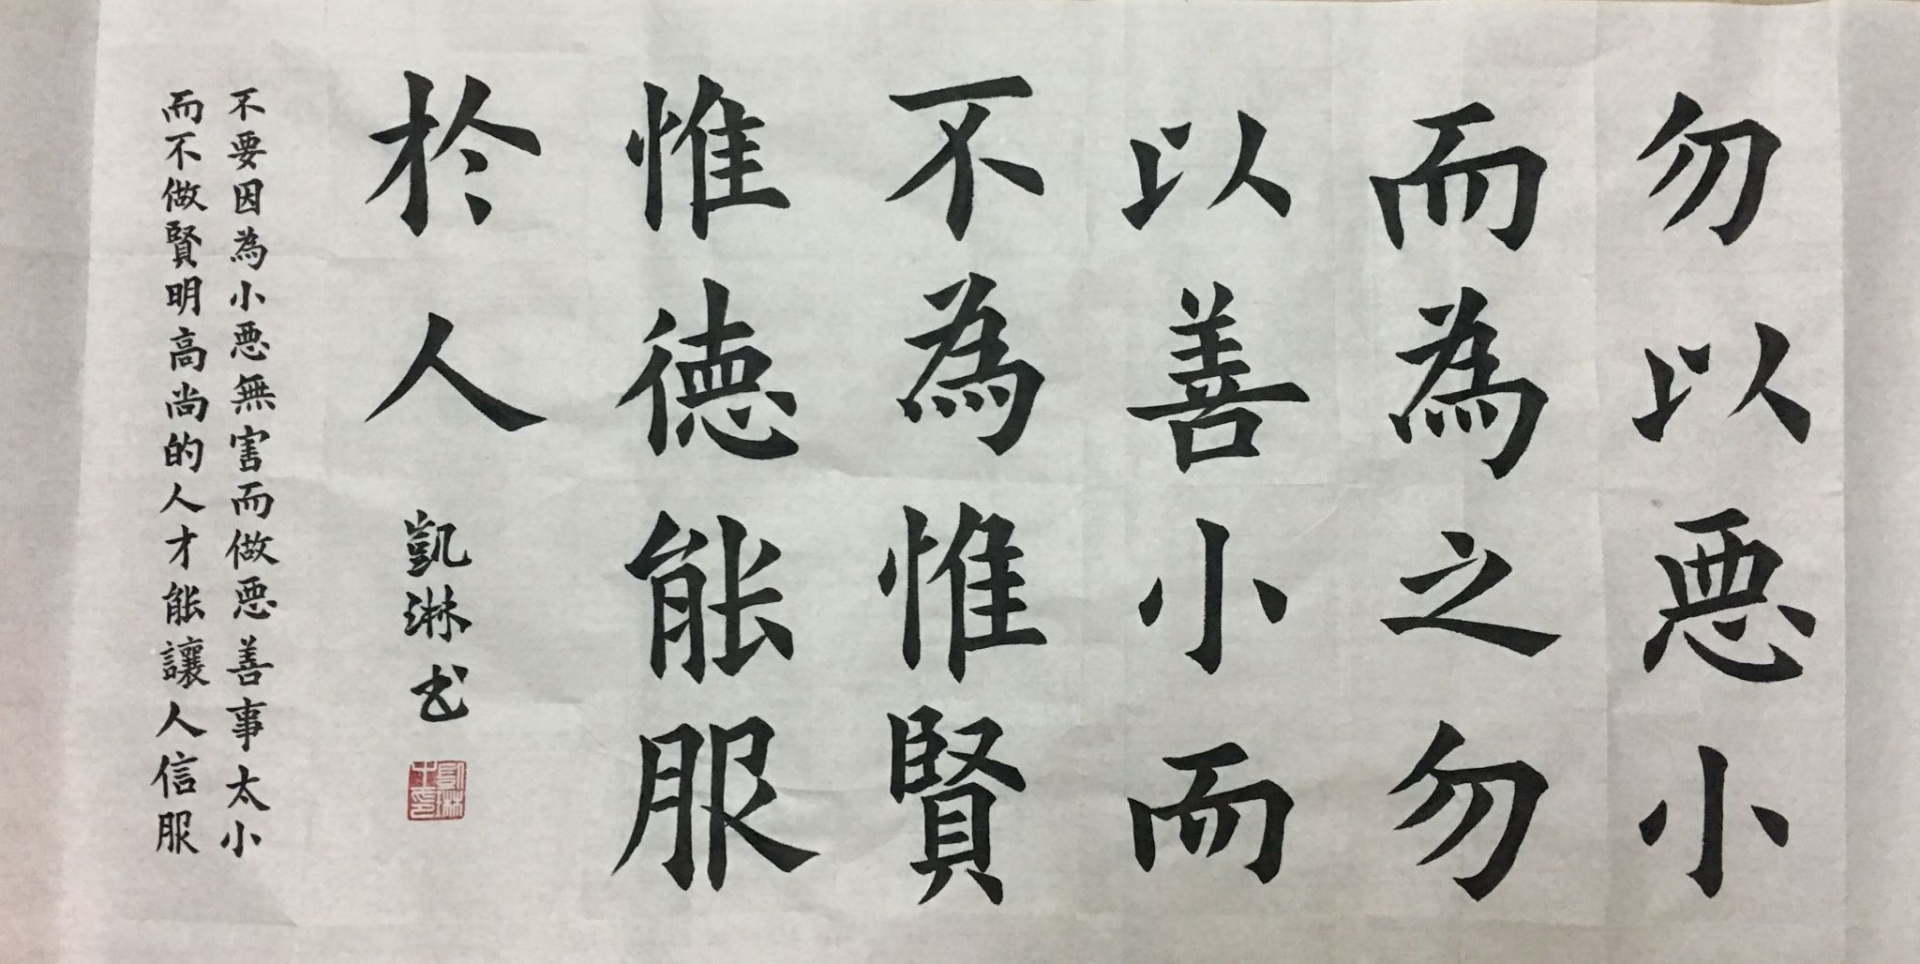 勿以惡小
而為之勿
以善小而
不為惟賢
惟德能服
於人
凱淋书
不要因為小惡無害而做惡善事太小
而不做賢明高尚的人才能讓人信服